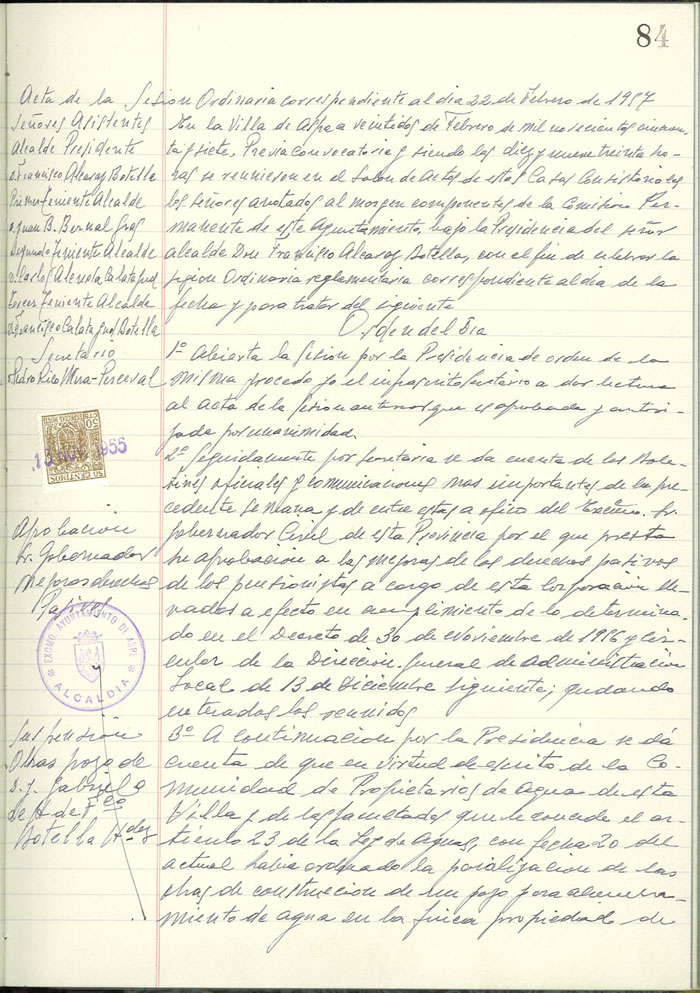 84
Acta de la Sesion Ordinaria correspondiente al dia 22 de Febrero de 1957
Señores Asistentes
Alcalde Presidente
D. Francisco Alcaraz Botella
Primer Teniente Alcalde
D. Juan B. Bernal Gras
Segundo Teniente Alcalde
D. Carlos Calatayud
Tercer Teniente Alcalde
D. Francisco Calatayud Botella
Secretario
Pedro Rico Mira-Perceval
En la Villa de Aspe a veintidos de Febrero de mil novecientos cincuen
ta y siete. Previa convocatoria y siendo las diez y nueve treinta ho-
ras se reunieron en el Salon de Actos de estas Casas Consistoriales
los señores anotados al margen componentes de la Comision Per-
manente de este Ayuntamiento, bajo la Presidencia del señor
alcalde Don Francisco Alcaraz Botella, con el fin de celebrar la
sesion Ordinaria reglamentaria correspondiente al dia de la
fecha y para tratar del siguiente
Orden del Dia
1º Abierta la Sesion por la Presidencia de orden de la
misma procedo yo el infrascrito Secretario a dar lectura
al acta de la sesion anterior que es aprobada y autori-
zada por unanimidad.
2º Seguidamente por Secretaria se da cuenta de los Bole-
tines oficiales y comunicaciones mas importantes de la pre-
cedente semana y de entre estas a oficio del Excmo. Sr.
Gobernador Civil de esta Provincia por el que presta
su aprobación a las mejoras de los derechos pasivos
de los pensionistas a cargo de esta Corporación lle-
vados a efecto en cumplimiento de lo determina-
do en el Decreto de 30 de Noviembre de 1956 y Cir-
cular de la Direccion General de Administración
Local de 13 de Diciembre siguiente; quedando
enterados los reunidos
3º A continuacion por la Presidencia se dá
cuenta de que en virtud de escrito de la Co-
munidad de Propietarios de Agua de esta
Villa y de las facultades que le concede el ar-
tículo 23 de la Ley de Aguas, con fecha 20 del
actual habia ordenado la paralizacion de las
obras de construccion de un pozo para alumbra-
miento de agua en la finca propiedad de
50 CENTIMOS
13 NOV 1955
Aprobación
Sr. Gobernador
Mejoras derechos
Pasivos
EXCMO. AYUNTAMIENTO DE ASPE
ALCALDIA
Suspensión
Obras pozo de
Gabriel
Botella Hdez